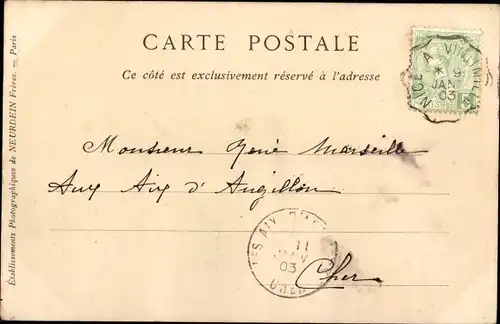 CARTE POSTALE
Ce côté est exclusivement réservé à l'adresse
NICE A VINTIMILLE
9
JANV
03
Monsieur René Marseille
Aux Aix d'Angillon
LES AIX-D'AN
11
JANV
03
CHER
Cher
Établissements Photographiques de NEURDEIN Frères. — Paris